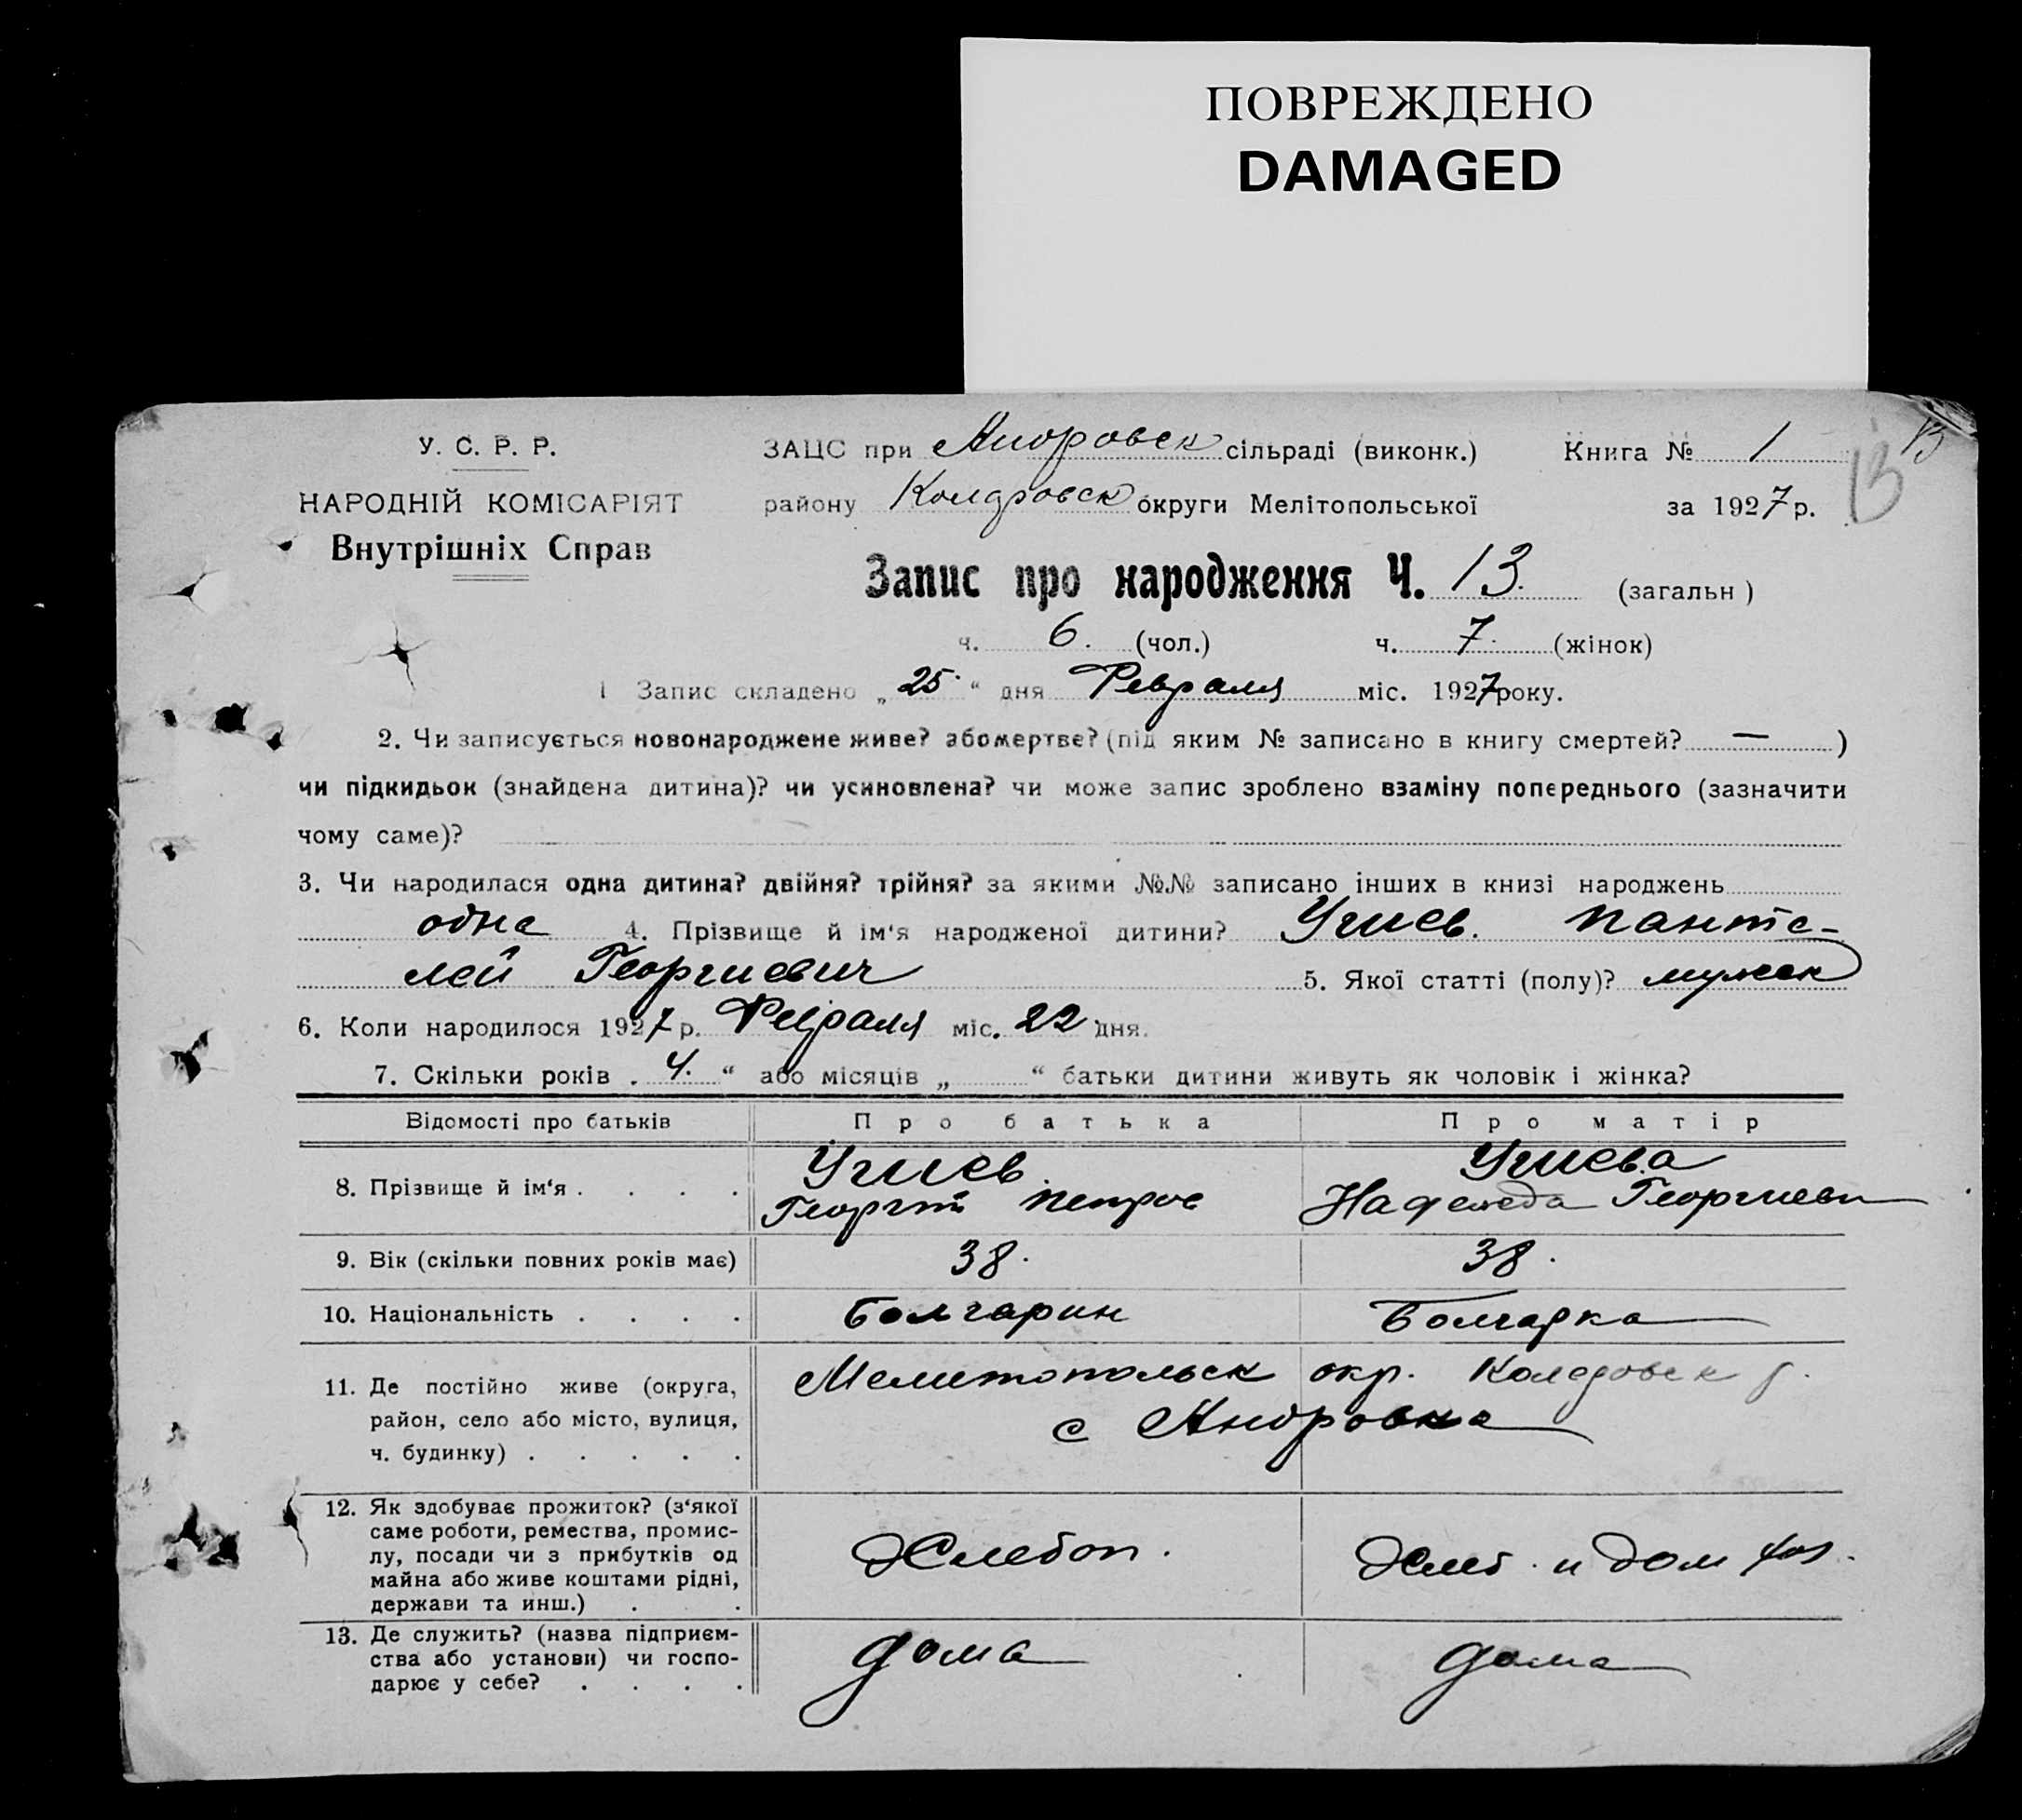 ПОВРЕЖДЕНО
DAMAGED
У. С. Р. Р.
НАРОДНІЙ КОМІСАРІЯТ
Внутрішніх Справ
ЗАЦС при Андровск сільраді (виконк.) Книга № 1
району Колдровск округи Мелітопольської за 1927 р.
13
13
Запис про народження Ч. 13. (загальн)
ч. 6. (чол.) ч. 7. (жінок)
1 Запис складено „25.“ дня Февраля міс. 1927 року.
2. Чи записується новонароджене живе? або мертве? (під яким № записано в книгу смертей? — )
чи підкидьок (знайдена дитина)? чи усиновлена? чи може запис зроблено взаміну попереднього (зазначити
чому саме)?
3. Чи народилася одна дитина? двійня? трійня? за якими №№ записано інших в книзі народжень
одна 4. Прізвище й ім‘я народженої дитини? Учиев. Панте-
лей Георгиевич 5. Якої статті (полу)? мужск
6. Коли народилося 1927 р. Февраля міс. 22 дня.
7. Скільки років „ 4. “ або місяців „ “ батьки дитини живуть як чоловік і жінка?
Відомості про батьків Про батька Про матір
8. Прізвище й ім‘я . . . . Учиев. Учиева
Георгий Петров Надежда Георгиевн
9. Вік (скільки повних років має) 38. 38.
10. Національність . . . . Болгарин Болгарка
11. Де постійно живе (округа, Мелитопольск окр. Коларовск р.
район, село або місто, вулиця, с Андровка
ч. будинку) . . . . .
12. Як здобуває прожиток? (з‘якої
саме роботи, ремества, промис-
лу, посади чи з прибутків од Хлебоп. Хлеб. и дом хоз.
майна або живе коштами рідні,
держави та инш.) . .
13. Де служить? (назва підприєм-
ства або установи) чи госпо- дома дома
дарює у себе? . . . .